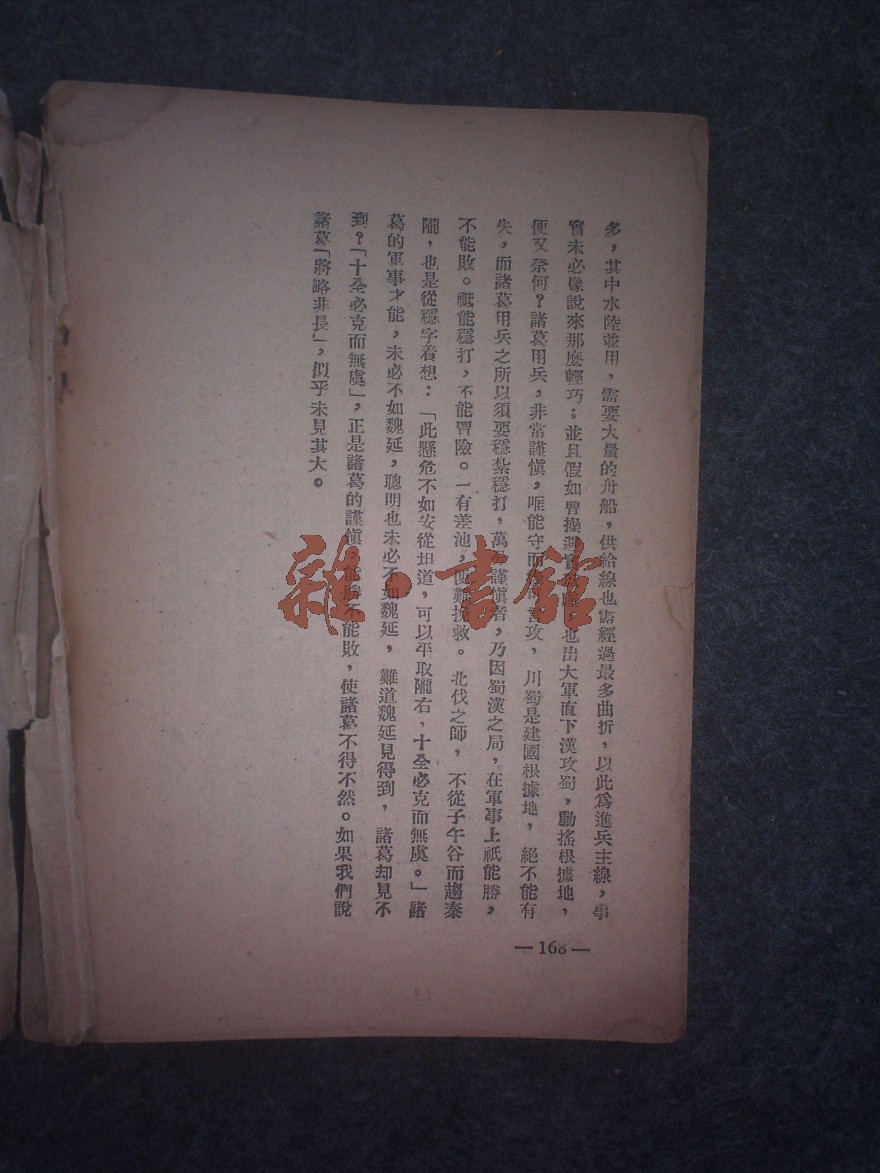 多，其中水陸並用，需要大量的舟船，供給線也需經過最多曲折，以此爲進兵主線，事
實未必像說來那麼輕巧；並且假如曹操也出大軍直下漢攻蜀，動搖根據地，
便又奈何？諸葛用兵，非常謹愼，唯能守而言攻，川蜀是建國根據地，絕不能有
失，而諸葛用兵之所以須要穩紮穩打，萬分謹愼者，乃因蜀漢之局，在軍事上祇能勝，
不能敗。祇能穩打，不能冒險。一有差池，便難挽救。北伐之師，不從子午谷而趨秦
隴，也是從穩字着想：「此懸危不如安從坦道，可以平取隴右，十全必克而無虞。」諸
葛的軍事才能，未必不如魏延，聰明也未必不如魏延，難道魏延見得到，諸葛却見不
到？「十全必克而無虞」，正是諸葛的謹愼，能勝不能敗，使諸葛不得不然。如果我們說
諸葛「將略非長」，似乎未見其大。
—168—
雜·書館